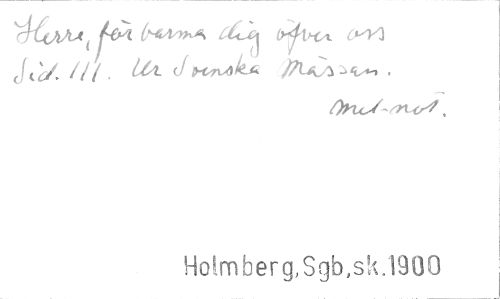 Herre, förbarma dig öfver oss
Sid. 111. Ur Svenska Mässan.
Mel-not.
Holmberg,Sgb,sk.1900